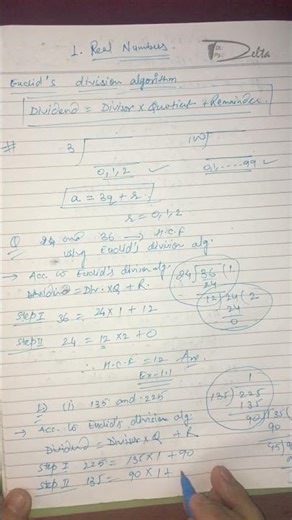 1. Real Numbers.
Delta
Euclid's division algorithm
Dividend = Divisor × Quotient + Remainder.
# 3
0, 1, 2
0, 1, ......99
a = 3q + r
r = 0, 1, 2
Q 24 and 36 → H.C.F
using Euclid's division alg.
→ Acc to Euclid's division alg.
Dividend = Divr. × Q + R.
Step I 36 = 24 × 1 + 12
Step II 24 = 12 × 2 + 0
24 ) 36 ( 1
24
12 ) 24 ( 2
24
0
∴ H.C.F = 12 Ans.
Ex-1.1
(i) 135 and 225
→ Acc. to Euclid's division alg:
Dividend = Divisor × Q + R
Step I 225 = 135 × 1 + 90
Step II 135 = 90 × 1 +
1
135 ) 225
135
90 ) 135 (
90
45 ) 90